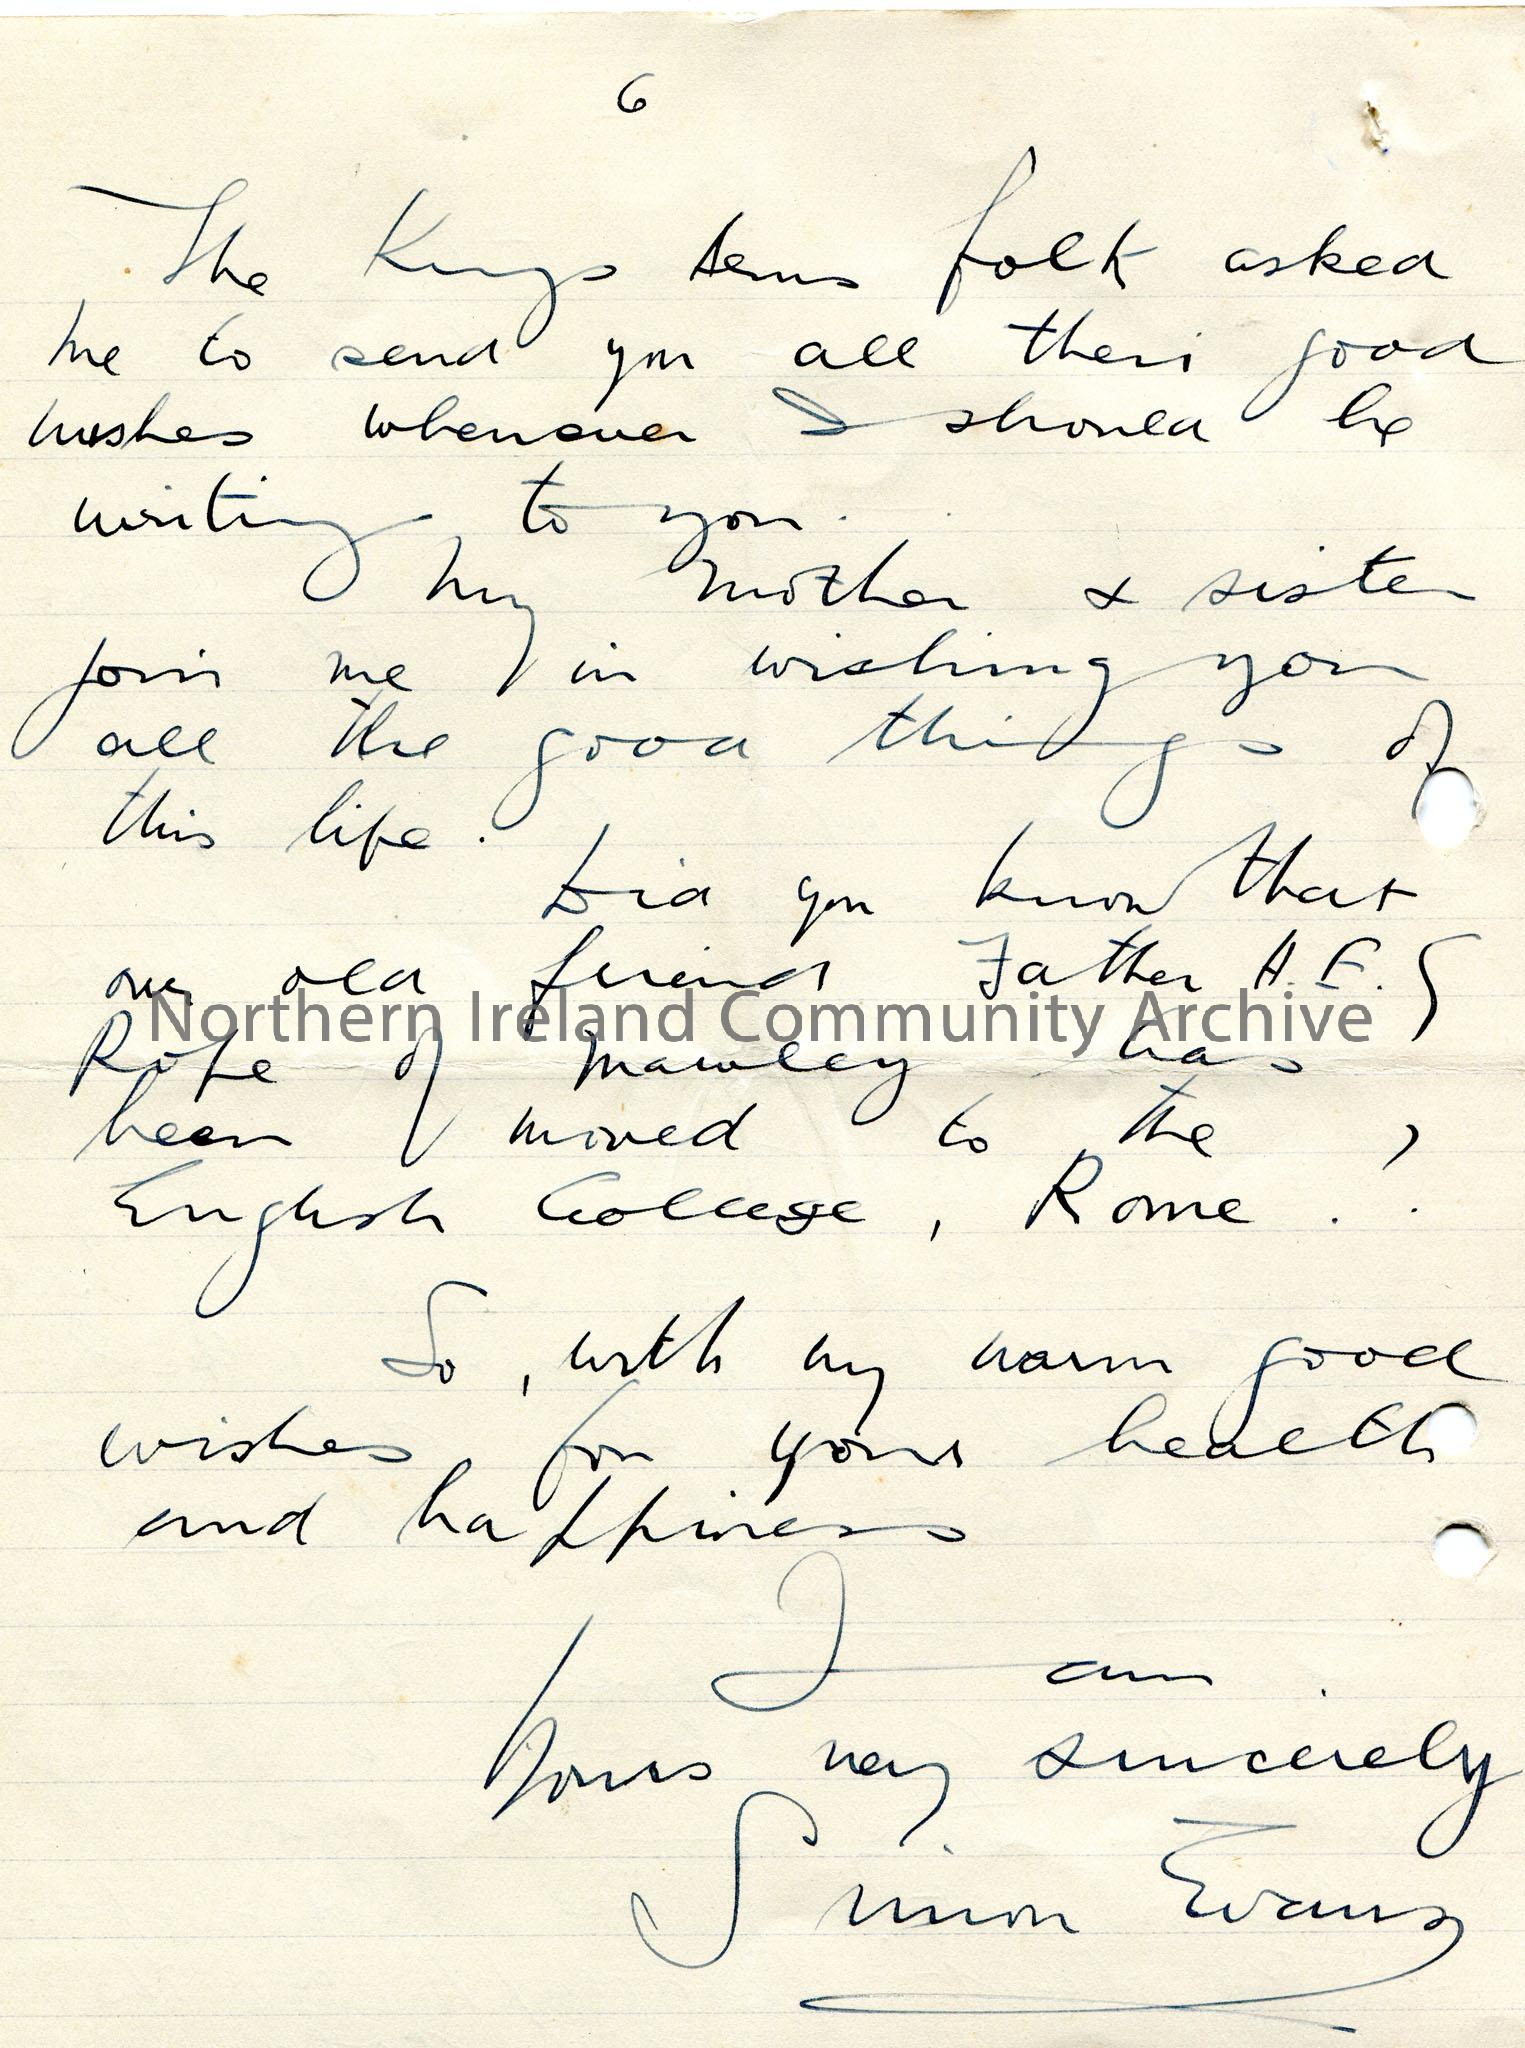 6
The Kings Arms folk asked
me to send you all their good
wishes whenever I should be
writing to you.
My Mother & sister
join me in wishing you
all the good things of
this life.
Did you know that
our old friend Father H.E.G
Rope of Mawley has
been moved to the
English College, Rome ?
So, with my warm good
wishes for your health
and happiness
I am
Yours very sincerely
Simon Evans
Northern Ireland Community Archive